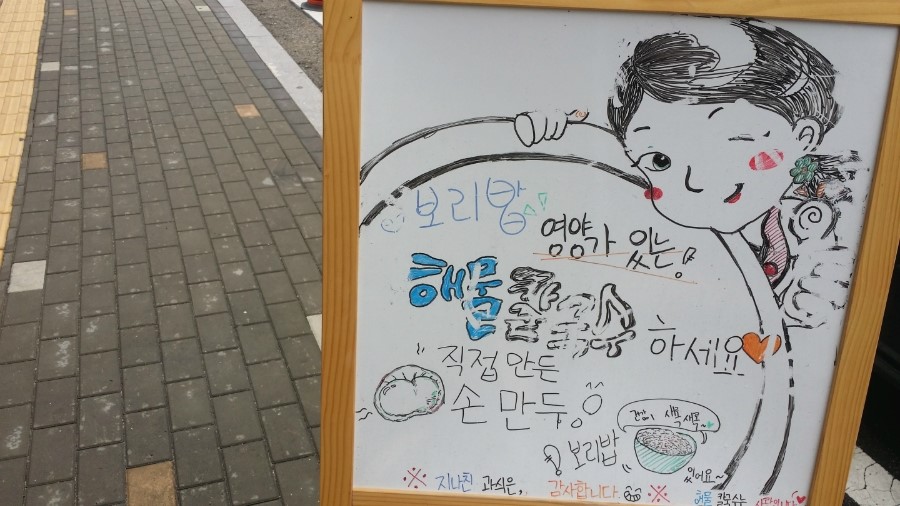 보리밥
영양가 있는
해물칼국수
하세요
직접 만든
손 만두
보리밥
건강이 새록새록~
있어요~
※ 지나친 과식은, 감사합니다. ※
해물 칼국수는 사랑입니다